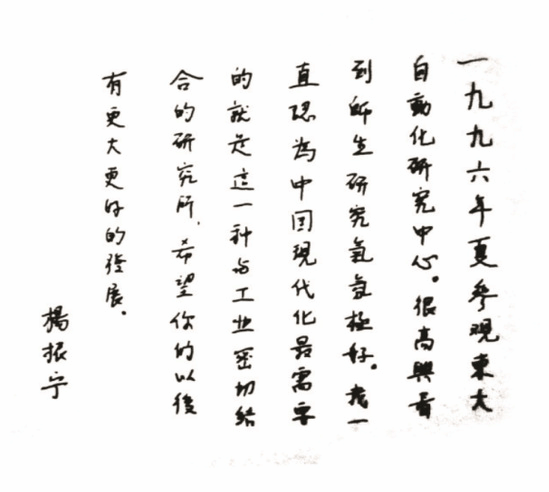 一九九六年夏参观東大
自動化研究中心。很高興看
到师生研究氣氛極好。我一
直認為中国現代化最需要
的就是這一种与工业密切结
合的研究所，希望你们以後
有更大更好的發展．
楊振宁